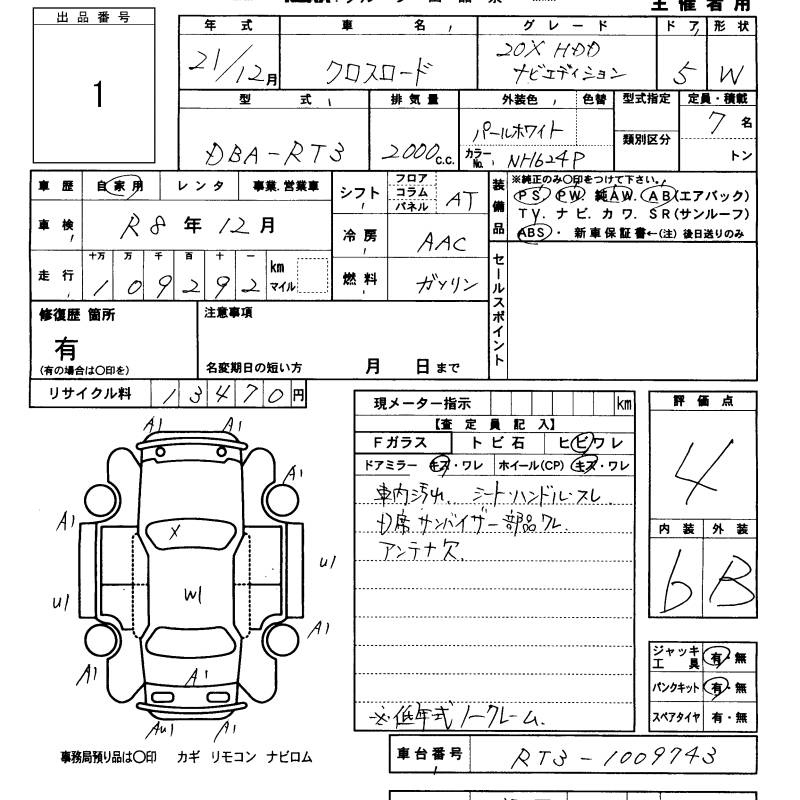 主催者用
出品番号
1
年式 車名 グレード ドア 形状
21/12月 クロスロード 20X HDD ナビエディション 5 W
型式 排気量 外装色 色替 型式指定 定員・積載
DBA-RT3 2000c.c. パールホワイト 類別区分 7名
カラーNo. NH624P トン
車歴 自家用 レンタ 事業.営業車
シフト フロア コラム パネル AT
装備品 ※純正のみ〇印をつけて下さい。
PS. PW. 純AW. AB(エアバック)
TV. ナビ. カワ. SR(サンルーフ)
ABS・ 新車保証書←(注) 後日送りのみ
車検 R8年12月
冷房 AAC
走行 十万 万 千 百 十 一 km マイル
109292
燃料 ガソリン
セールスポイント
修復歴 箇所 注意事項
有
(有の場合は〇印を) 名変期日の短い方 月 日まで
リサイクル料 13470円
現メーター指示 km
【査定員記入】
Fガラス トビ石 ヒビワレ
ドアミラー キズ・ワレ ホイール(CP) キズ・ワレ
車内汚れ. シート・ハンドル・スレ
D席サンバイザー部品ワレ.
アンテナ欠.
※低年式ノークレーム.
評価点
4
内装 外装
6 B
ジャッキ工具 有・無
パンクキット 有・無
スペアタイヤ 有・無
A1 A1
A1
A1
X
U1
W1
U1
A1
A1
A1
AU1 A1
事務局預り品は〇印 カギ リモコン ナビロム
車台番号 RT3-1009743